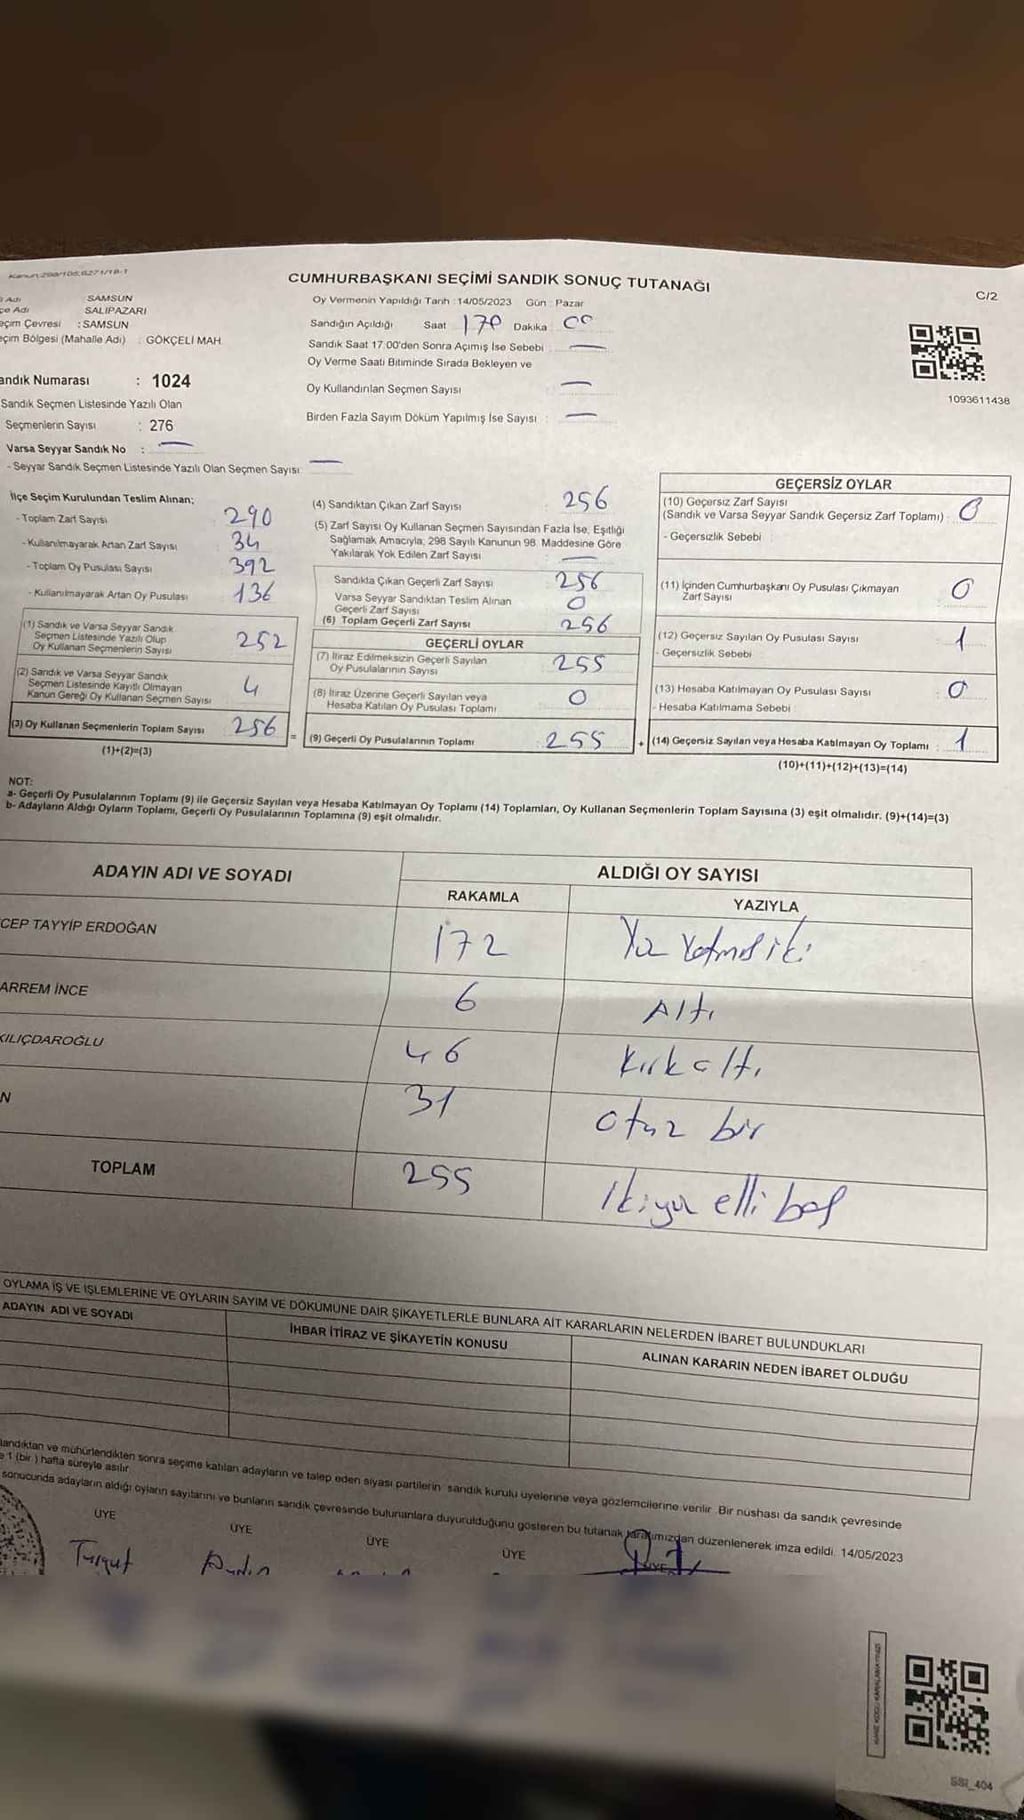 Kanun:298/105;6271/18-1
CUMHURBAŞKANI SEÇİMİ SANDIK SONUÇ TUTANAĞI
C/2
Adı : SAMSUN
çe Adı SALIPAZARI
eçim Çevresi : SAMSUN
eçim Bölgesi (Mahalle Adı) : GÖKÇELİ MAH.
Oy Vermenin Yapıldığı Tarih :14/05/2023 Gün : Pazar
Sandığın Açıldığı Saat 17 Dakika 00
Sandık Saat 17:00'den Sonra Açımış İse Sebebi —
Oy Verme Saati Bitiminde Sırada Bekleyen ve
Oy Kullandırılan Seçmen Sayısı —
Birden Fazla Sayım Döküm Yapılmış İse Sayısı : —
1093611438
andık Numarası : 1024
Sandık Seçmen Listesinde Yazılı Olan
Seçmenlerin Sayısı : 276
Varsa Seyyar Sandık No : —
- Seyyar Sandık Seçmen Listesinde Yazılı Olan Seçmen Sayısı: —
İlçe Seçim Kurulundan Teslim Alınan;
- Toplam Zarf Sayısı 290
- Kullanılmayarak Artan Zarf Sayısı 34
- Toplam Oy Pusulası Sayısı 392
- Kullanılmayarak Artan Oy Pusulası 136
(1) Sandık ve Varsa Seyyar Sandık
Seçmen Listesinde Yazılı Olup
Oy Kullanan Seçmenlerin Sayısı 252
(2) Sandık ve Varsa Seyyar Sandık
Seçmen Listesinde Kayıtlı Olmayan
Kanun Gereği Oy Kullanan Seçmen Sayısı 4
(3) Oy Kullanan Seçmenlerin Toplam Sayısı 256
(1)+(2)=(3)
(4) Sandıktan Çıkan Zarf Sayısı : 256
(5) Zarf Sayısı Oy Kullanan Seçmen Sayısından Fazla İse, Eşitliği
Sağlamak Amacıyla; 298 Sayılı Kanunun 98. Maddesine Göre
Yakılarak Yok Edilen Zarf Sayısı —
Sandıkta Çıkan Geçerli Zarf Sayısı 256
Varsa Seyyar Sandıktan Teslim Alınan
Geçerli Zarf Sayısı 0
(6) Toplam Geçerli Zarf Sayısı 256
GEÇERLİ OYLAR
(7) İtiraz Edilmeksizin Geçerli Sayılan
Oy Pusulalarının Sayısı 255
(8) İtiraz Üzerine Geçerli Sayılan veya
Hesaba Katılan Oy Pusulası Toplamı 0
= (9) Geçerli Oy Pusulalarının Toplamı 255 +
GEÇERSİZ OYLAR
(10) Geçersiz Zarf Sayısı
(Sandık ve Varsa Seyyar Sandık Geçersiz Zarf Toplamı) : 0
- Geçersizlik Sebebi :
(11) İçinden Cumhurbaşkanı Oy Pusulası Çıkmayan
Zarf Sayısı 0
(12) Geçersiz Sayılan Oy Pusulası Sayısı 1
- Geçersizlik Sebebi :
(13) Hesaba Katılmayan Oy Pusulası Sayısı 0
- Hesaba Katılmama Sebebi :
(14) Geçersiz Sayılan veya Hesaba Katılmayan Oy Toplamı : 1
(10)+(11)+(12)+(13)=(14)
NOT:
a- Geçerli Oy Pusulalarının Toplamı (9) ile Geçersiz Sayılan veya Hesaba Katılmayan Oy Toplamı (14) Toplamları, Oy Kullanan Seçmenlerin Toplam Sayısına (3) eşit olmalıdır. (9)+(14)=(3)
b- Adayların Aldığı Oyların Toplamı, Geçerli Oy Pusulalarının Toplamına (9) eşit olmalıdır.
ADAYIN ADI VE SOYADI ALDIĞI OY SAYISI
RAKAMLA YAZIYLA
CEP TAYYİP ERDOĞAN 172 Yüz Yetmiş iki
ARREM İNCE 6 Altı
KILIÇDAROĞLU 46 Kırk altı
N 31 otuz bir
TOPLAM 255 ikiyüz elli beş
OYLAMA İŞ VE İŞLEMLERİNE VE OYLARIN SAYIM VE DÖKÜMÜNE DAİR ŞİKAYETLERLE BUNLARA AİT KARARLARIN NELERDEN İBARET BULUNDUKLARI
ADAYIN ADI VE SOYADI İHBAR İTİRAZ VE ŞİKAYETİN KONUSU ALINAN KARARIN NEDEN İBARET OLDUĞU
landıktan ve mühürlendikten sonra seçime katılan adayların ve talep eden siyasi partilerin sandık kurulu üyelerine veya gözlemcilerine verilir. Bir nüshası da sandık çevresinde
e 1 (bir) hafta süreyle asılır.
sonucunda adayların aldığı oyların sayılarını ve bunların sandık çevresinde bulunanlara duyurulduğunu gösteren bu tutanak tarafımızdan düzenlenerek imza edildi. 14/05/2023
ÜYE ÜYE ÜYE ÜYE ÜYE
Turgut Aydın
SSI_404